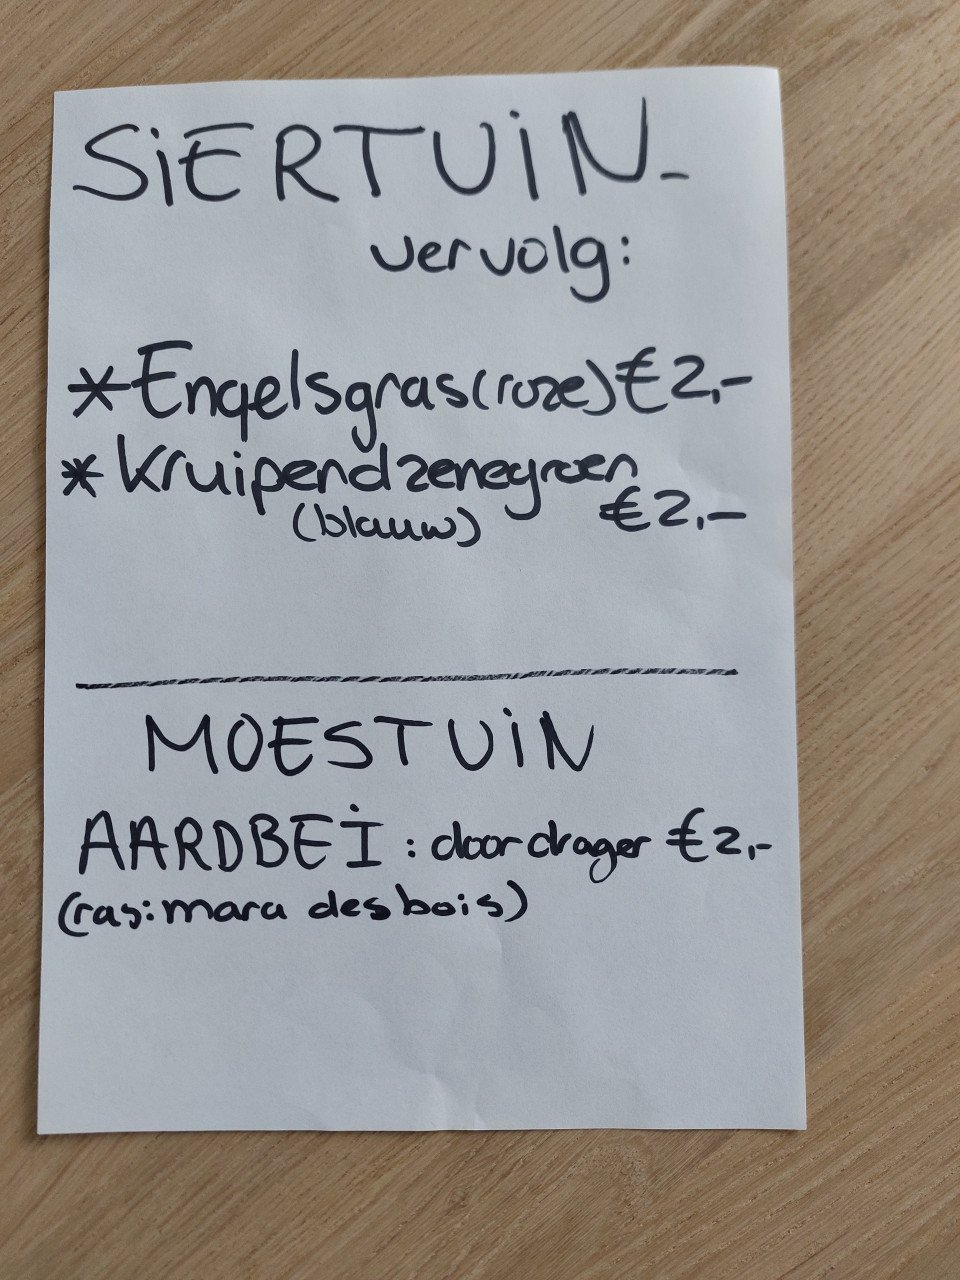 SiERTUiN-
vervolg:
* Engelsgras (roze) €2,-
* Kruipend zenegroen
(blauw) €2,-
MOESTUiN
AARDBEI : doordrager €2,-
(ras: mara des bois)